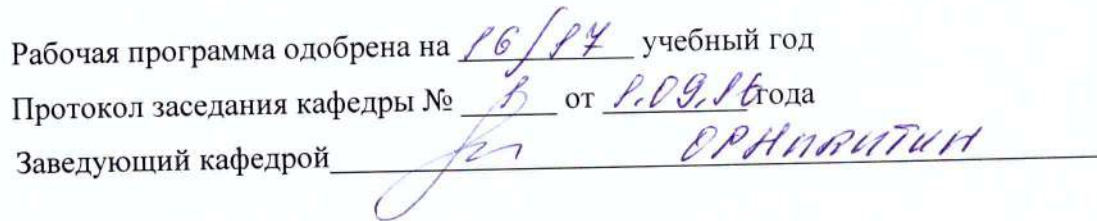 Рабочая программа одобрена на 16/17 учебный год
Протокол заседания кафедры № 1 от 1.09.16 года
Заведующий кафедрой О Р Никитин